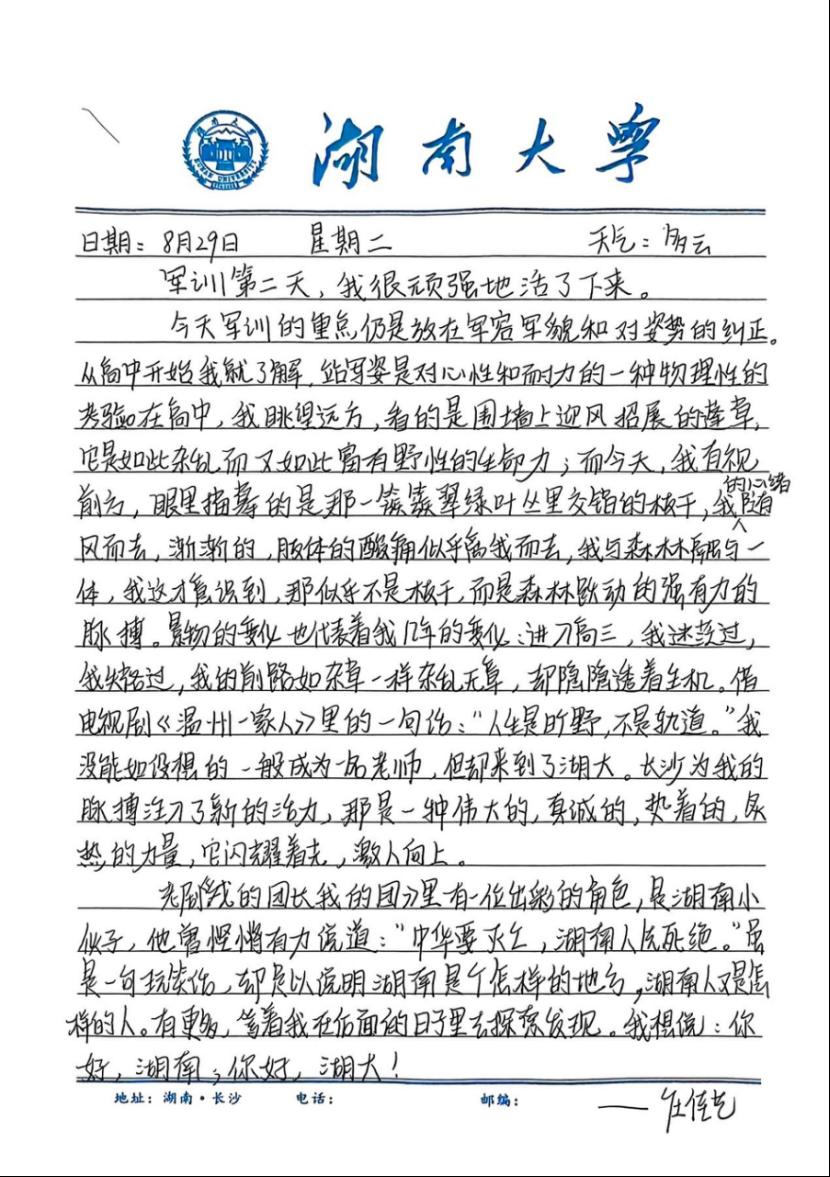 湖南大学
日期：8月29日 星期二 天气：多云
军训第二天，我很顽强地活了下来。
今天军训的重点仍是放在军容军貌和对姿势的纠正。
从高中开始我就了解，站军姿是对心性和耐力的一种物理性的
考验。在高中，我眺望远方，看的是围墙上迎风招展的蓬草，
它是如此杂乱而又如此富有野性的生命力；而今天，我直视
前方，眼里描摹的是那一簇簇翠绿叶丛里交错的枝干，我的心绪随
风而去，渐渐的，肢体的酸痛似乎离我而去，我与森林融与一
体，我这才意识到，那似乎不是枝干，而是森林跃动的强有力的
脉搏。景物的变化也代表着我几年的变化：进入高三，我迷茫过，
我失路过，我的前路如杂草一样杂乱无章，却隐隐透着生机。借
电视剧《温州一家人》里的一句话：“人生是旷野，不是轨道。”我
没能如设想的一般成为一名老师，但却来到了湖大。长沙为我的
脉搏注入了新的活力，那是一种伟大的，真诚的，热着的，炙
热的力量，它闪耀着光，激人向上。
老剧《我的团长我的团》里有一位出彩的角色，是湖南小
伙子，他曾铿锵有力说道：“中华要灭亡，湖南人先死绝。”虽
是一句玩笑话，却足以说明湖南是个怎样的地方，湖南人又是怎
样的人。有更多，等着我在后面的日子里去探索发现。我想说：你
好，湖南；你好，湖大！
地址：湖南·长沙 电话： 邮编：
——